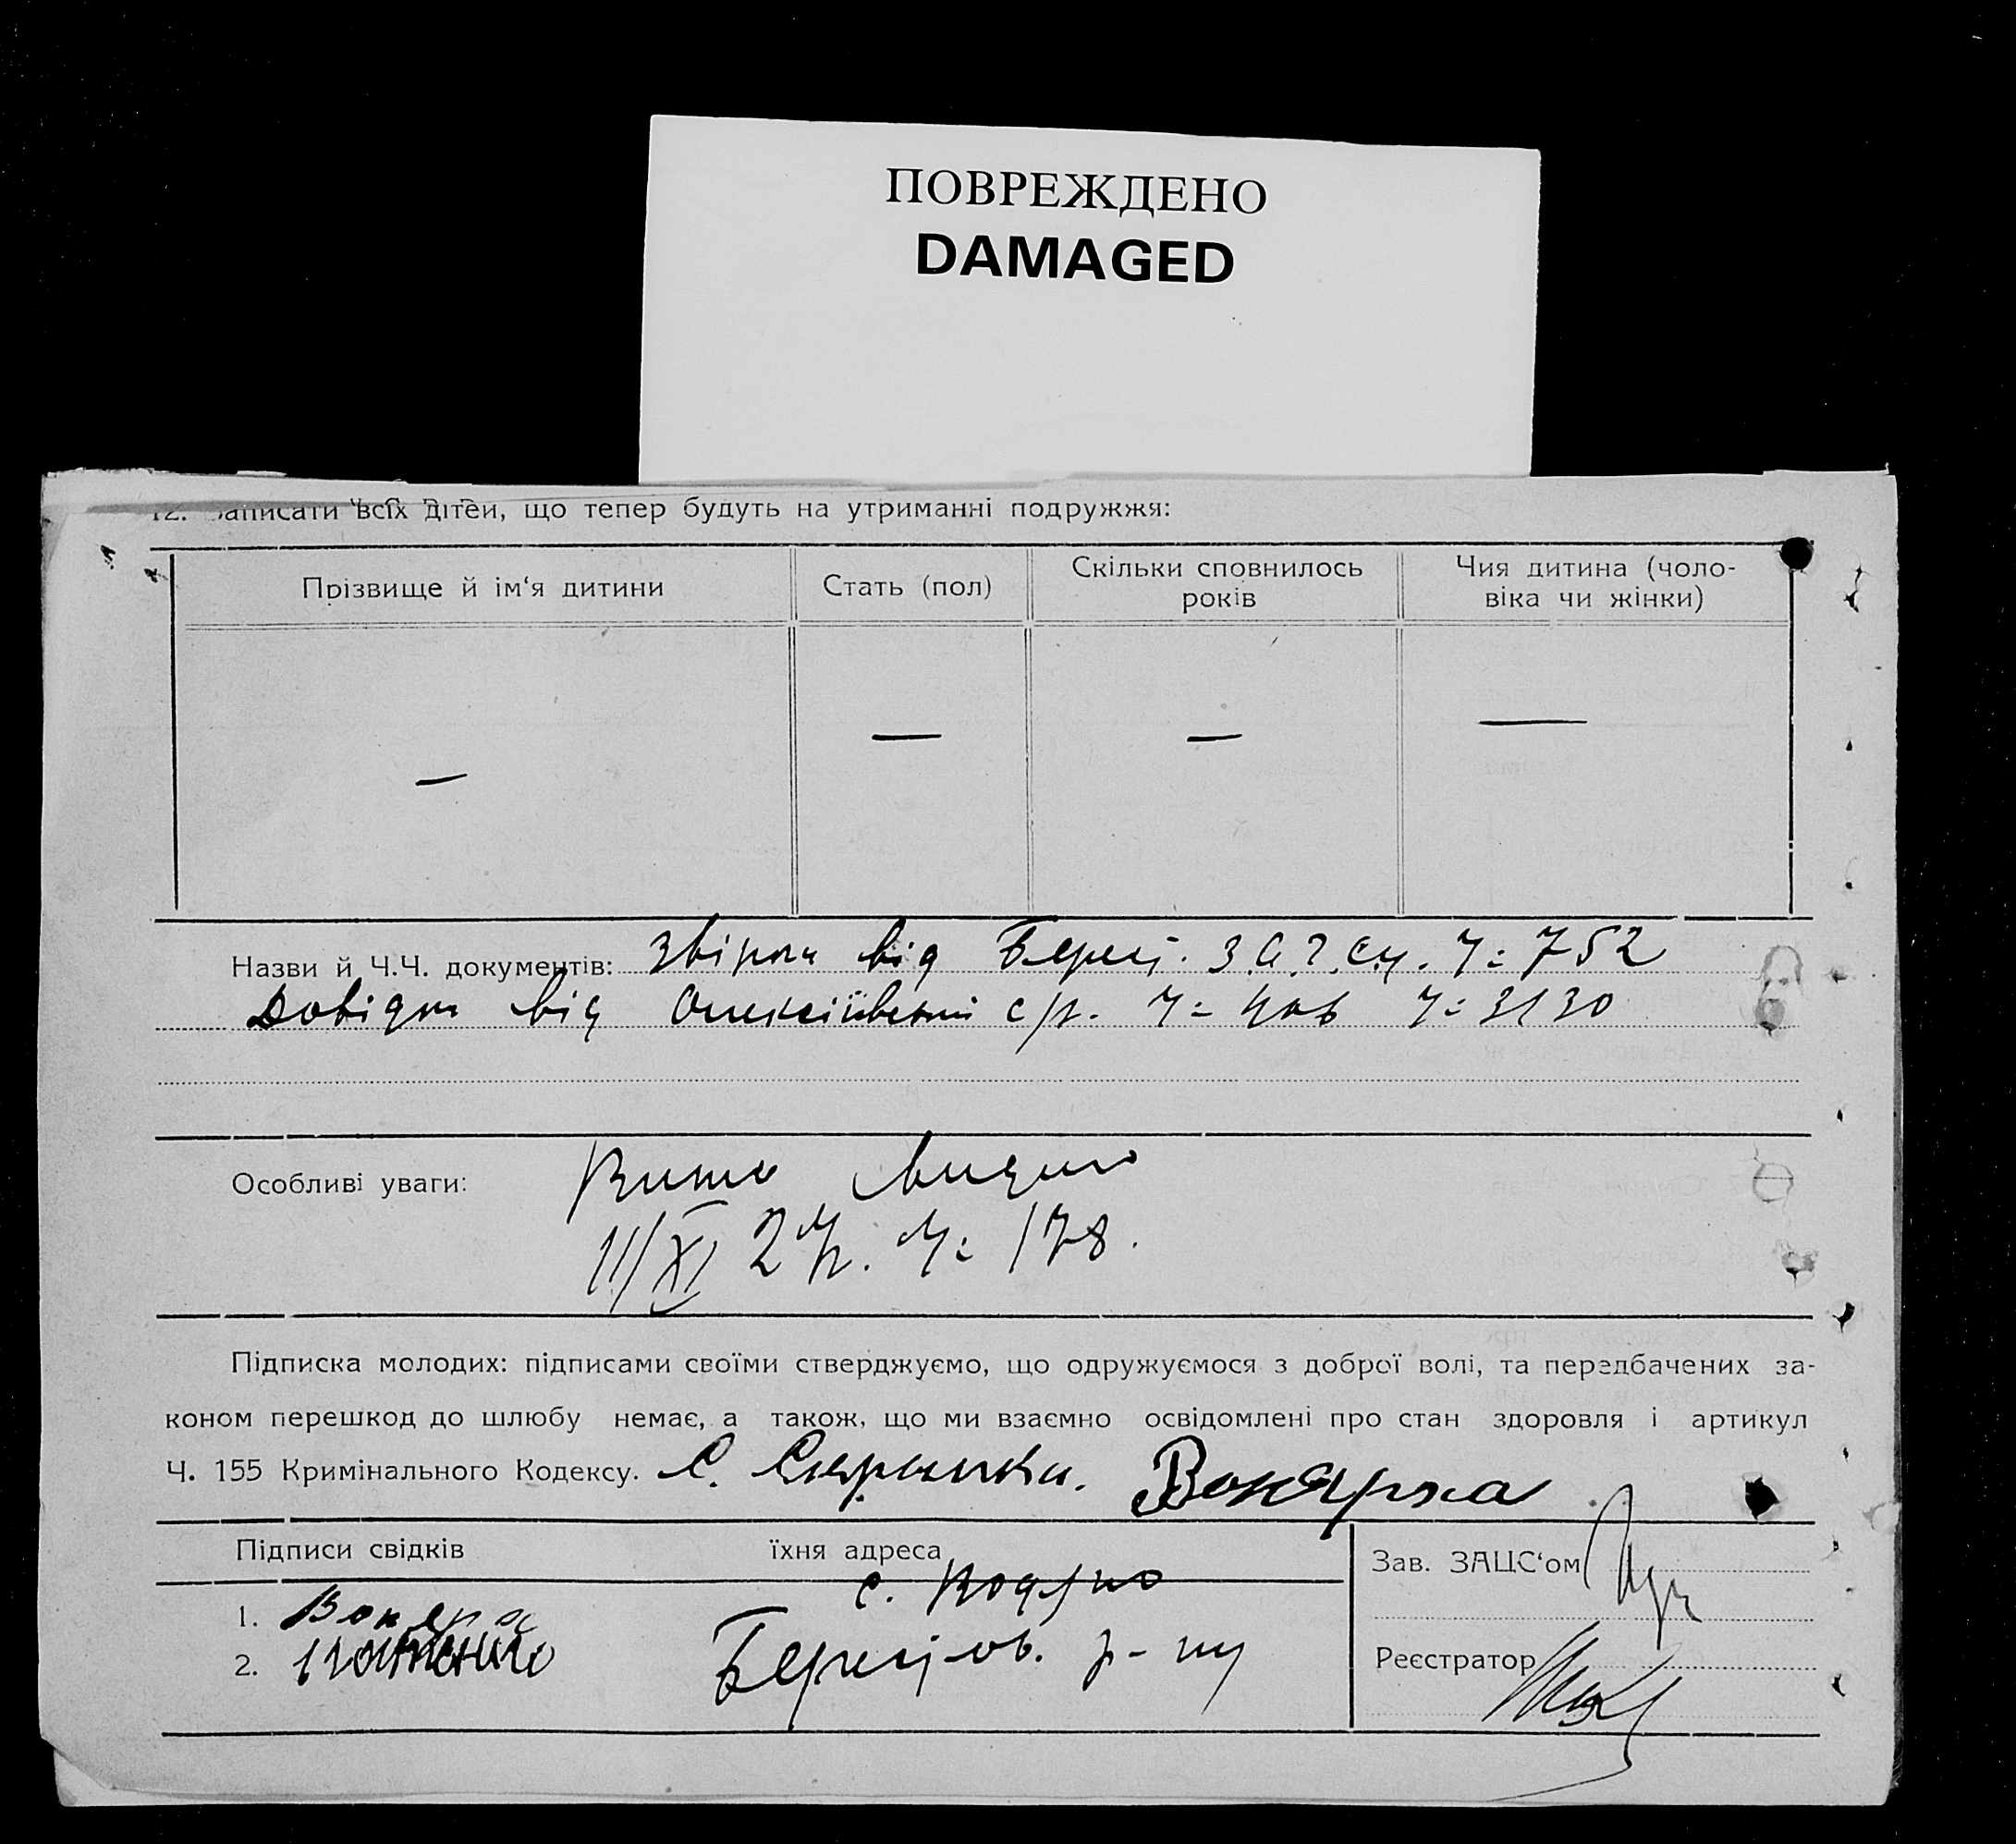 ПОВРЕЖДЕНО
DAMAGED
12. Записати всіх дітей, що тепер будуть на утриманні подружжя:
Прізвище й ім‘я дитини
Стать (пол)
Скільки сповнилось
років
Чия дитина (чоло-
віка чи жінки)
— — — —
Назви й Ч.Ч. документів: від З.А.Г.С.у. Ч: 752
Довідка від с/р. Ч: Ч: 3130
Особливі уваги:
11/XI 27р. Ч: 178.
Підписка молодих: підписами своїми стверджуємо, що одружуємося з доброї волі, та передбачених за-
коном перешкод до шлюбу немає, а також, що ми взаємно освідомлені про стан здоровля і артикул
Ч. 155 Кримінального Кодексу. С.
Підписи свідків
їхня адреса
Зав. ЗАЦС‘ом
с.
1.
2.
р-ну
Реєстратор